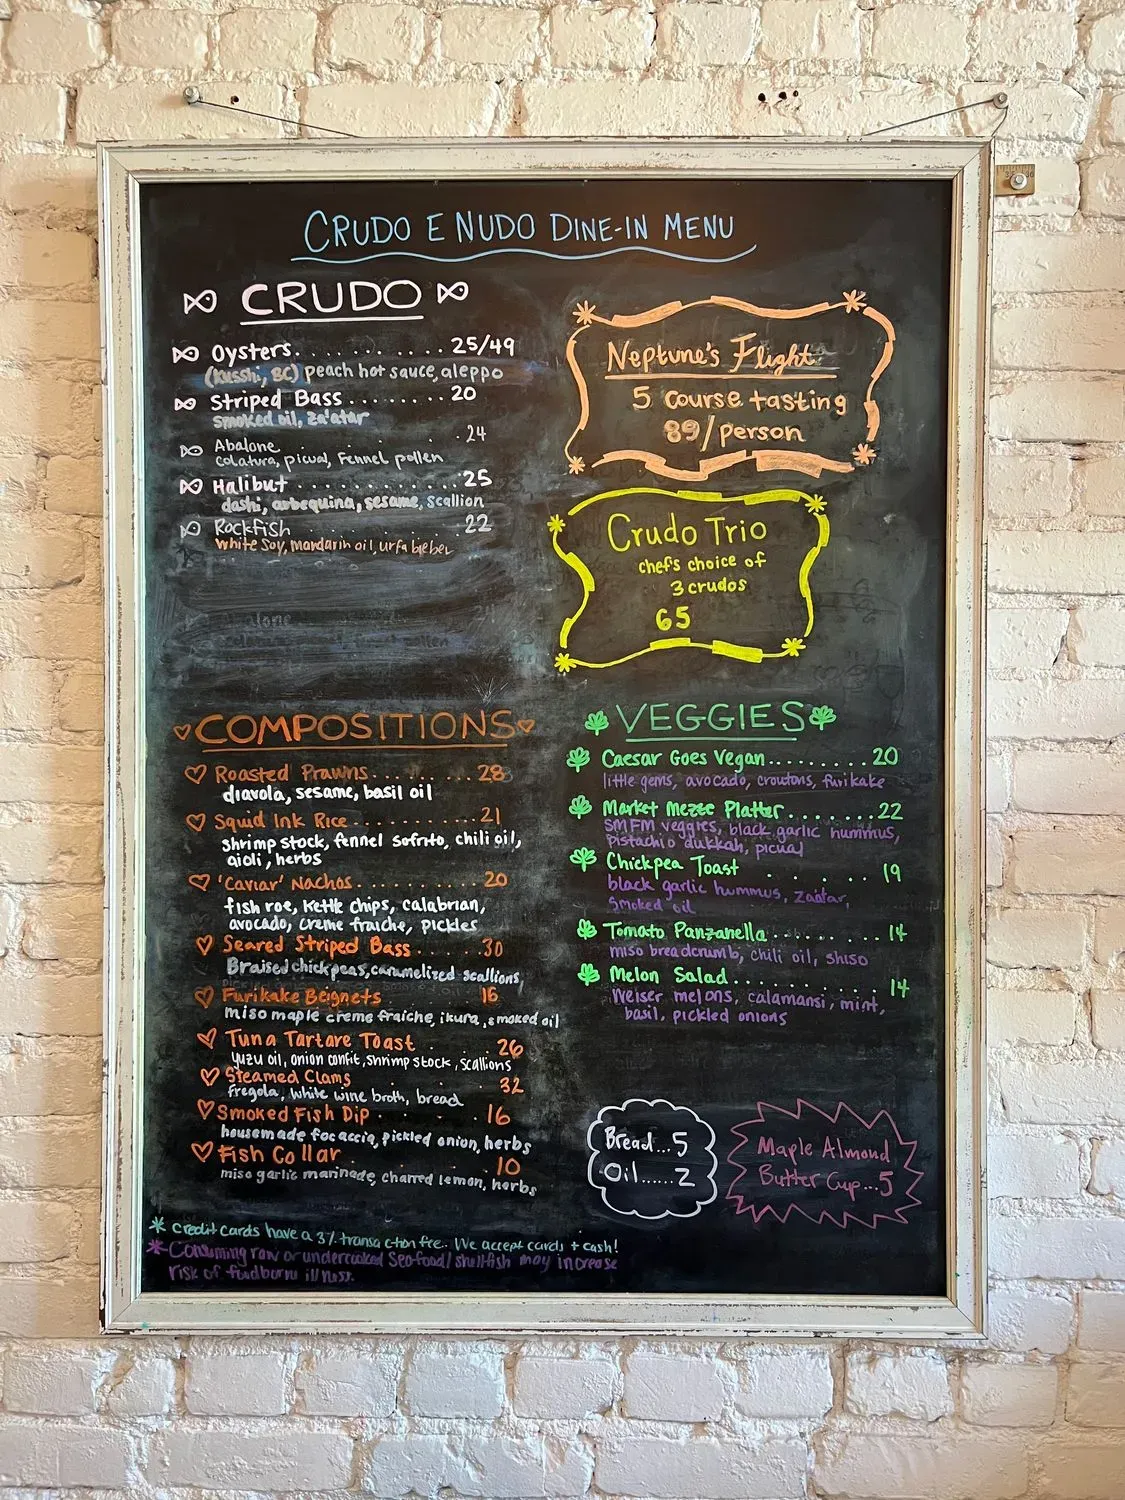 CRUDO E NUDO DINE-IN MENU
CRUDO
Oysters. . . . . . . . . . . . 25/49
(Kusshi, BC) peach hot sauce, aleppo
Striped Bass . . . . . . . . 20
smoked oil, za'atar
Abalone . . . . . 24
colatura, picual, Fennel pollen
Halibut . . . . . . . . . . . . 25
dashi, arbequina, sesame, scallion
Rockfish . . . . . . 22
white soy, mandarin oil, urfa bieber
Neptune's Flight
5 course tasting
89/person
Crudo Trio
chef's choice of
3 crudos
65
COMPOSITIONS
Roasted Prawns . . . . . . . 28
diavola, sesame, basil oil
Squid Ink Rice . . . . . . . . . . 21
shrimp stock, fennel sofrito, chili oil,
aioli, herbs
'Caviar' Nachos . . . . . . . . . . 20
fish roe, Kettle chips, calabrian,
avocado, creme fraiche, pickles
Seared Striped Bass . . . . . 30
Braised chickpeas, caramelized scallions,
Furikake Beignets 16
miso maple creme fraiche, ikura, smoked oil
Tuna Tartare Toast . . . . 26
yuzu oil, onion confit, shrimp stock, scallions
Steamed Clams . . . . 32
fregola, white wine broth, bread
Smoked Fish Dip . . . . . 16
housemade focaccia, pickled onion, herbs
Fish Collar . . . . . 10
miso garlic marinade, charred lemon, herbs
VEGGIES
Caesar Goes Vegan . . . . . . . . . 20
little gems, avocado, croutons, furikake
Market Mezze Platter . . . . . . . 22
SMFM veggies, black garlic hummus,
pistachio dukkah, picual
Chickpea Toast . . . . . . 19
black garlic hummus, Zaatar,
smoked oil
Tomato Panzanella . . . . . . . . . 14
miso breadcrumb, chili oil, shiso
Melon Salad . . . . . . . . . . . 14
Weiser melons, calamansi, mint,
basil, pickled onions
Bread...5
Oil......2
Maple Almond
Butter Cup...5
* credit cards have a 3% transaction fee. We accept cards + cash!
* Consuming raw or undercooked Seafood/shellfish may increase
risk of foodborne illness.